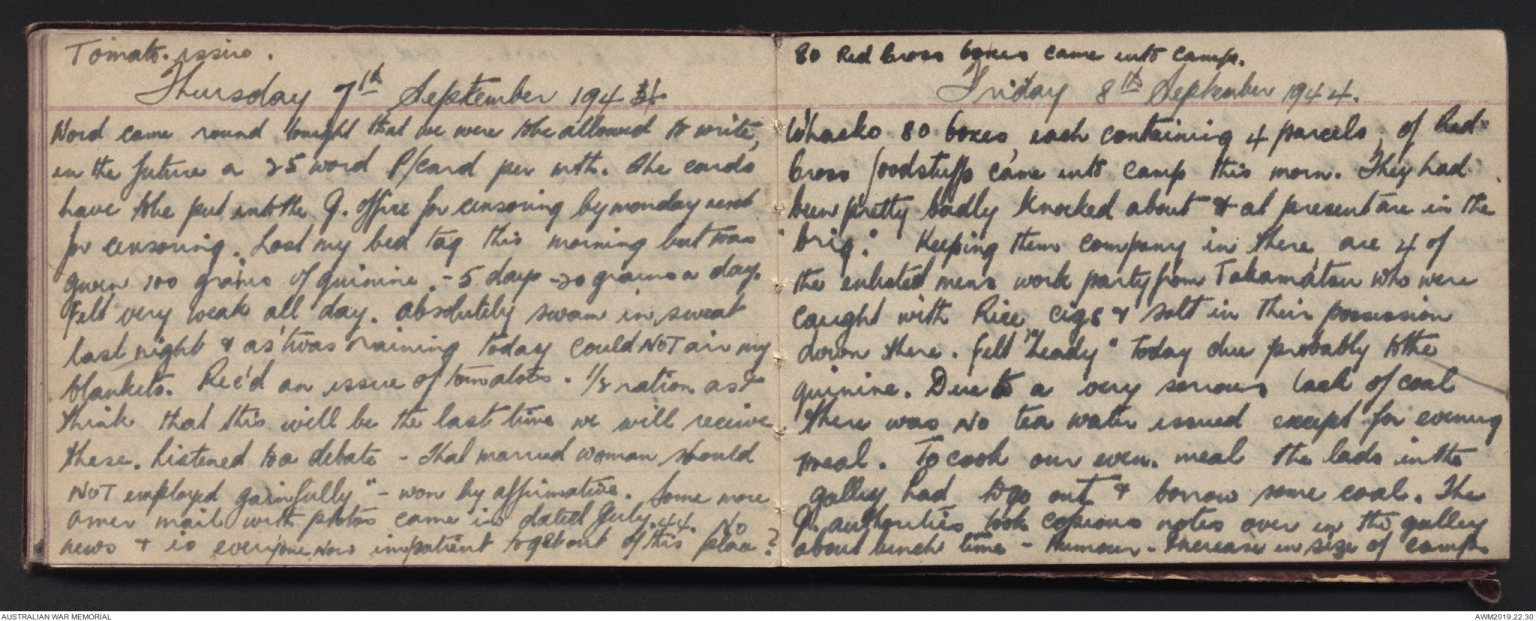 Tomato issue.
Thursday 7th September 1944
Word came round tonight that we were tobe allowed to write,
in the future a 25 word P/card per mth. The cards
have tobe put into the J. office for censoring by monday next
for censoring. Lost my bed tag this morning but was
given 100 grains of quinine - 5 days - 20 grains a day.
Felt very weak all day. Absolutely swam in sweat
last night & as 'twas raining today could NOT air my
blankets. Rec'd an issue of tomatoes. 1/8 ration as I
think that this will be the last time we will receive
these. Listened to a debate - That married woman should
NOT employed gainfully" - won by affirmative. Some more
Amer mail with photos came in dated July. 44. No
news & is everyone now impatient toget out of this place?
80 Red Cross boxes came into camp.
Friday 8th September 1944.
Whacko 80 boxes, each containing 4 parcels, of Red
Cross foodstuffs came into camp this morn. They had
been pretty badly knocked about & at present are in the
"brig." Keeping them company in there, are 4 of
the enlisted mens work party from Takamatsu who were
caught with Rice, cigs & salt in their possession
down there. Felt "heady" today due probably tothe
quinine. Due to a very serious lack of coal
there was No tea water issued except for evening
meal. To cook our even. meal the lads in the
galley had togo out & borrow some coal. The
J. authorities took copious notes over in the galley
about lunch time - Rumour - Increase in size of camp
AUSTRALIAN WAR MEMORIAL
AWM2019.22.30